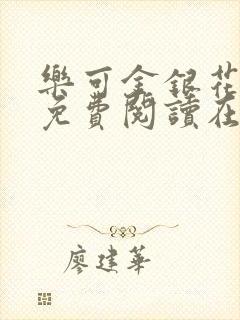 樂可金銀花
免費閱讀在
廖建華